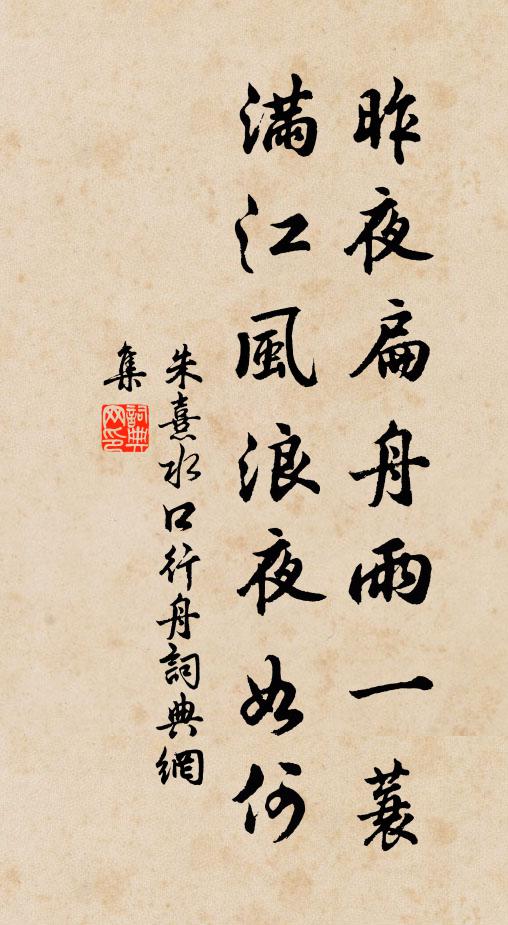 昨夜扁舟雨一蓑
滿江風浪夜如何
朱熹水口行舟詞典網
集
詞典网印